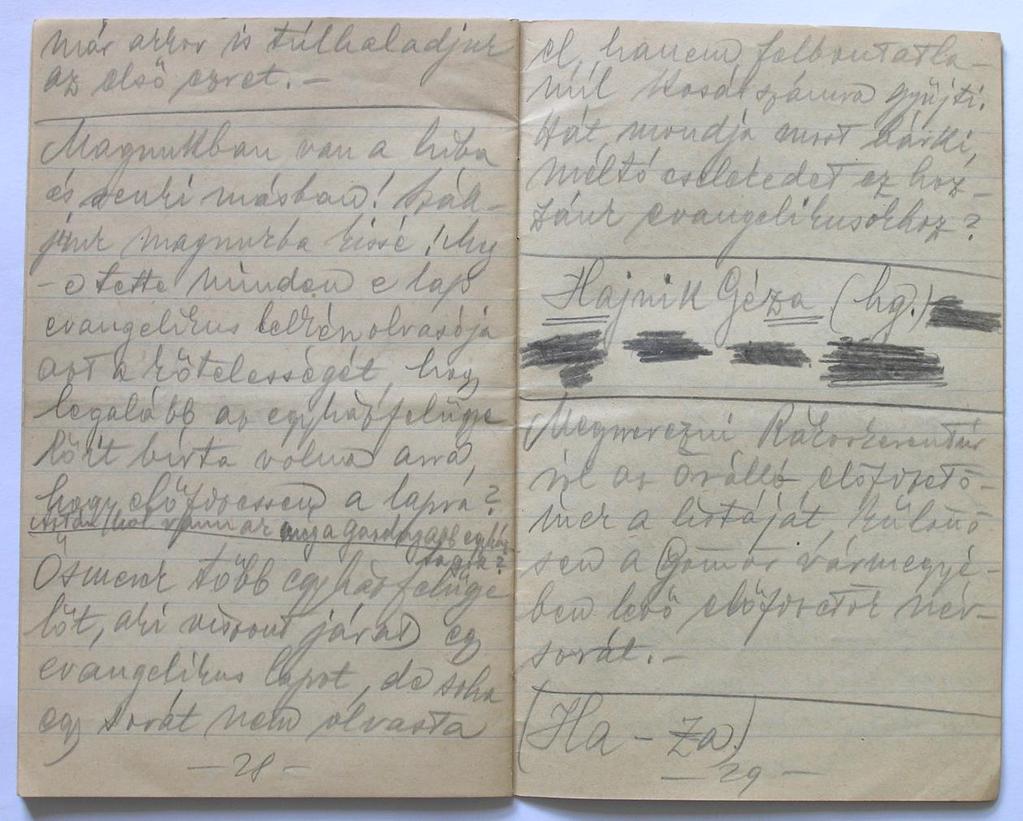 már akkor is túlhaladjuk
az első ezret. —
Magunkban van a hiba
és senki másban! Száll-
junk magunkba kissé! Meg
-e tette minden e lap
evangelikus lelkész olvasója
azt a kötelességét, hogy
legalább az egyházfelügye
lőit bírta volna arra,
hogy előfizessen a lapra?
Aztán hol vannak még a gazdagabb egyház
tagja?
Ösmerek több egyházfelügye
lőt, aki viszont járat egy
evangelikus lapot, de soha
egy sorát nem olvasta
— 28 —
el, hanem felbontatla-
núl Kosár számra gyűjti.
Hát mondja most bárki,
méltó cselekedet ez hoz-
zánk evangelikusokhoz?
Hajnik Géza (hg.)
Megnerezni Rákoskeresztúr
ól az Őrálló előfizető-
inek a listáját, különö
sen a Gömör vármegyé-
ben levő előfizetők név-
sorát. —
(Ha - Za)
— 29 —